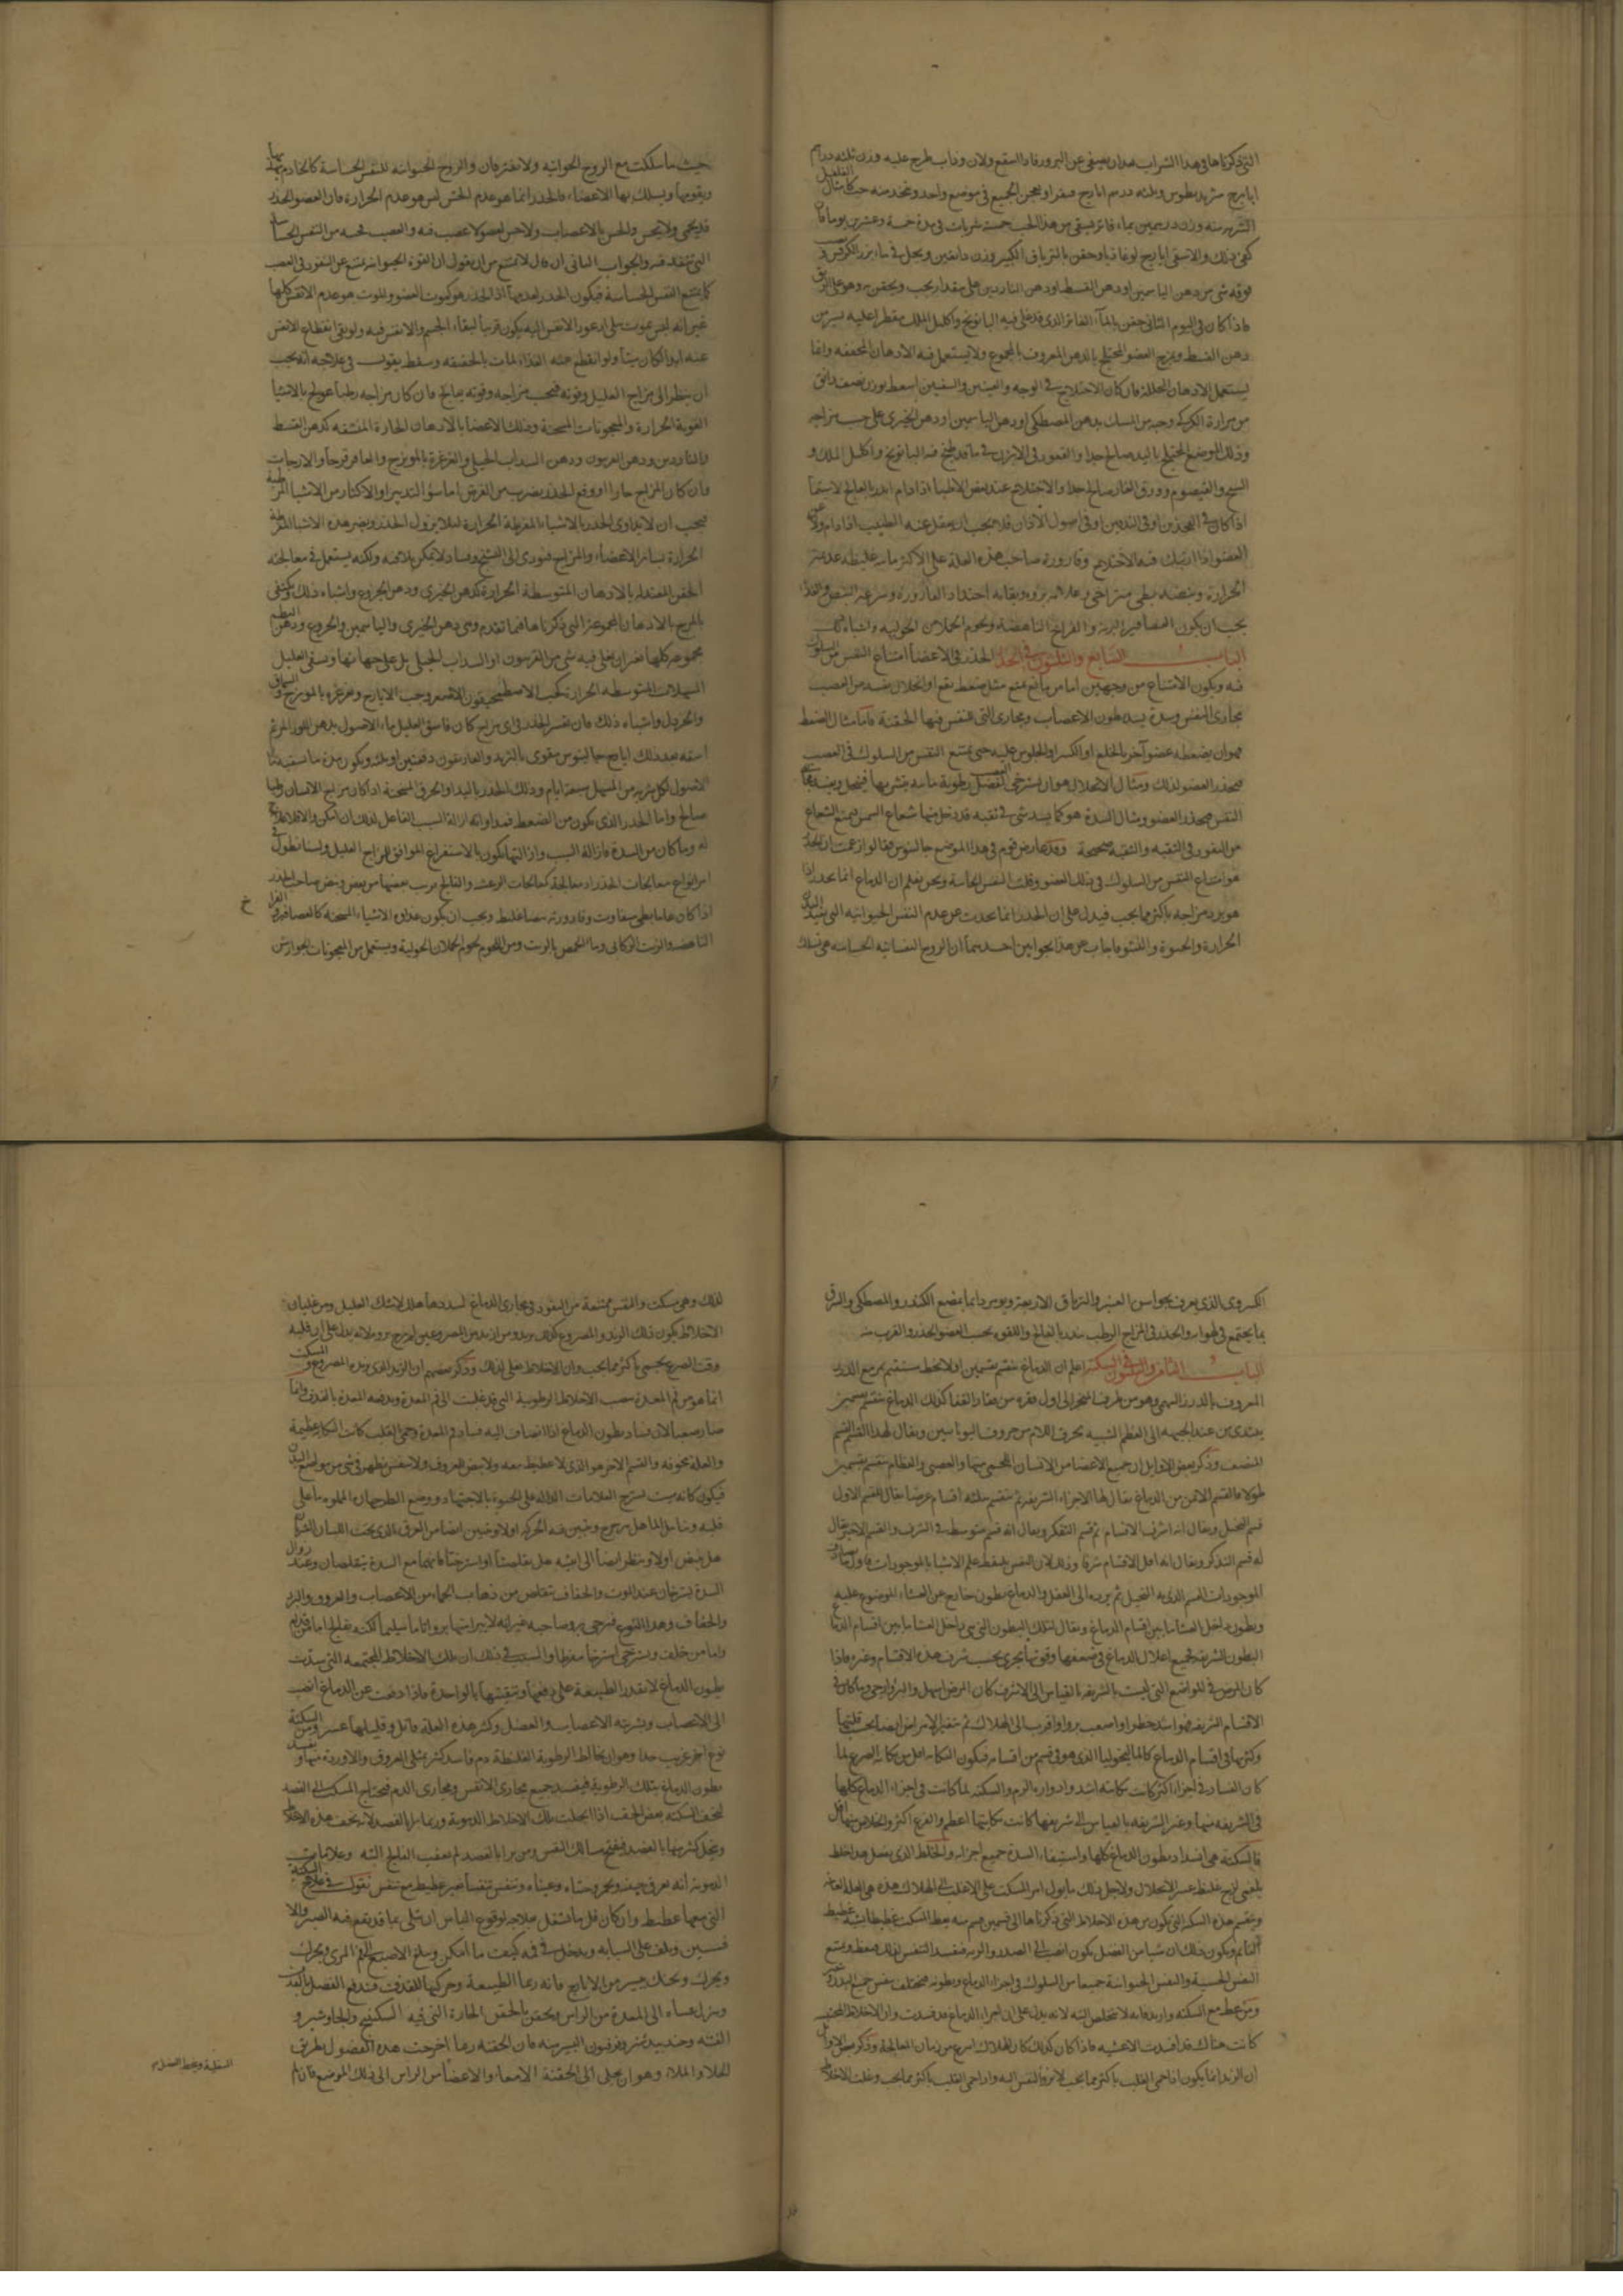 التي ذكرناها في هذا الشراب
ايارج وثلثه درهم ايارج فيقرا ويعجن الجميع في موضع واحد ويتخذ منه حب
الشربه منه وزن درهمين بماء فاتر فيسقى من هذا الحب خمسة شربات في مدة خمسة وعشرين يوما فان
كفى ذلك والا سقى ايارج لوغاذيا وحقن بالترياق الكبير وزن دانقين ويحل في ماء بزر الكرفس و
فوقه شي من دهن الياسمين او دهن القسط او دهن الناردين على مقدار يجب ويحقن به وهو على الريق
فاذا كان في اليوم الثاني حقن بالماء الفاتر الذي قد غلى فيه البابونج واكليل الملك مقطرا عليه يسير من
دهن القسط ويمرخ العضو المختلج بالدهن المعروف بالمجموع ولا يستعمل فيه الادهان المجففه وانما
يستعمل الادهان المحللة فان كان الاختلاج في الوجه والعينين والشفتين اسعط بوزن نصف دانق
من مرارة الكركي وحبه من المسك بدهن المصطكي او دهن الياسمين او دهن الخيري على حسب مزاجه
وذلك الموضع المختلج باليد صالح جدا والقعود في الابزن في ماء قد طبخ فيه البابونج واكليل الملك و
الشيح والقيصوم وورق الغار صالح جدا والاختلاج عند بعض الاطباء اذا دام انذر بالفالج لا سيما
اذا كان في الخدين او في اليدين او في اصول الاذان فلا يجب ان يغفل عنه الطبيب اذا دام
العضو اذا ارتبك فيه الاختلاج وقارورة صاحب هذه العلة على الاكثر مائيه غليظه عديمة
الحرارة ونبضه بطي متراخي وعلامه بروه
يجب ان يكون العصافير البرية والفراخ الناهضة ولحوم الحملان الحولية واشباه ذلك
الباب السابع والثلثون في الخدر الخدر في الاعضا امتناع النفس من السلوك
فيه ويكون الامتناع من وجهين اما من مانع يمنع مثل ضغط يقع او انحلال يفسد من العصب
مجاري النفس وسدة يسد بطون الاعصاب ومجاري التي للنفس فيها الحقيقة فاما مثال الضغط
فهو ان يضغطه عضو آخر بالخلع او الكسر او الجلوس عليه حتى يمتنع النفس من السلوك في العصب
فيخدر العضو لذلك ومثال الانحلال هو ان يسترخي العصب لفضل رطوبة
النفس فيخدر العضو ومثال السدة هو كما يسد شي في ثقبه قد دخل فيها شعاع الشمس فيمنع الشعاع
من النفوذ في الثقبه والثقبه صحيحة وقد عارض قوم في هذا الموضع جالينوس فقالوا زعمت ان الخدر
هو امتناع النفس من السلوك في ذلك العضو وقلت النفس الحاسة ونحن نعلم ان الدماغ انما يخدر اذا
هو برد مزاجه باكثر مما يجب فيدل على ان الخدر انما يحدث عن عدم النفس الحيوانيه التي تفيد البدن
الحرارة والحيوة والنشو فاجاب عن هذا بجوابين احدهما ان الروح النفسانيه الحساسه هي تسلك
حيث ما سلكت مع الروح الحيوانيه ولا يفترقان والروح الحيوانيه للنفس الحساسة كالخادم
ويقويها ويسلك بها الاعضاء فالخدر انما هو عدم الحس ليس هو عدم الحرارة فان العضو الخدر
قد يحمى ولا يحس والحس بالاعصاب ولا حس لعضو لا عصب فيه والعصب حسه من النفس الحساسة
التي تنفذ فيه والجواب الثاني ان قال لا يمتنع من ان يقول ان القوة الحيوانيه تمتنع عن النفوذ في العصب
كما تمتنع النفس الحساسة فيكون الخدر لعدمها اذ الخدر هو كموت العضو والموت هو عدم الانفس كلها
غير انه ليس بموت بل
عنه ابدا لكان ميتا ولو انقطع عنه الغذاء لمات بالحقيقه وسقط يقول في علاجه انه يجب
ان ينظر الى مزاج العليل وقوته فبحسب مزاجه وقوته يعالج فان كان مزاجه رطبا عولج بالاشيا
القوية الحرارة والمعجونات المسخنة ودلك الاعضا بالادهان الحارة المنشفه كدهن القسط
والناردين ودهن الفربيون ودهن السداب الجبلي والغرغرة بالمويزج والعاقرقرحا والايارجات
وان كان المزاج حارا ووقع الخدر بضرب من العرض اما سوء التدبير او الاكثار من الاشيا المرطبة
فيجب ان لا يداوى الخدر بالاشياء المفرطة الحرارة لئلا يزول الخدر ويضر هذه الاشيا المفرطة
الحرارة لسائر الاعضاء والمزاج فيودي الى التشنج وفساد لا يمكن تلافيه ولكنه يستعمل في معالجته
الحقن المعتدله بالادهان المتوسطة الحرارة كدهن الخيري ودهن الخروع واشباه ذلك ويكتفي
بالمرخ بالادهان المجموعة التي ذكرناها فيما تقدم وهي دهن الخيري والياسمين والخروع ودهن البطم
مجموعه كلها من غير ان يغلى فيه شي من الفربيون او السداب الجبلي بل على جهاتها ويسقى العليل
المسهلات المتوسطه الحرارة كحب الاصطمحيقون الاصغر وحب الايارج وغرغره بالمويزج والسماق
والخردل واشباه ذلك فان تفسر الخدر في اي مزاج كان فاسق العليل ماء الاصول بدهن اللوز المر ثم
اسقه بعد ذلك ايارج جالينوس مقوى بالتربد والغاريقون دفعتين او ثلثه ويكون مدة ما يسقيه ماء
الاصول لكل شربه من المسهل سبعة ايام ودلك الخدر باليد او الخرق المسخنة اذا كان مزاج الانسان رطبا
صالح واما الخدر الذي يكون من الضغط فمداواته ازالة السبب الفاعل لذلك ان امكن والا فلا علاج
له وما كان من السدة فازالة السبب وازالتها يكون بالاستفراغ الموافق لمزاج العليل ولسنا نطول في
امر انواع معالجات الخدر اذ معالجته كمعالجات الرعشه والفالج قريب بعضها من بعض ونبض صاحب الخدر
اذا كان عاما بطي متفاوت وقارورته بيضا غليظ ويجب ان يكون غذاوه الاشياء المسخنه كالعصافير والفراخ
الناهضه والزيت الركابي وماء الحمص بالزيت ومن اللحوم لحوم الحملان الحولية ويستعمل من المعجونات الجوارشن
خ
الكسروي الذي يعرف بجوارش العنبر والترياق الاربعة ويومر دائما بمضغ الكندر والمصطكى والبزاق
بما يجتمع في لهواته والخدر في المزاج الرطب ينذر بالفالج واللقوه بحسب العضو الخدر والقرب منه
الباب الثامن والثلثون في السكتة اعلم ان الدماغ ينقسم بقسمين اولا بخط مستقيم يمر مع الدرز
المعروف بالدرز السهمي وهو من طرف المنخر الى اول فقره من فقار القفا كذلك الدماغ ينقسم بقسمين
يبتدى من عند الجبهه الى العظم الشبيه بحرف اللام من حروف اليونانيين ويقال لهذا القسم القسم
المنصف وذكر بعض الاوايل ان جميع الاعضا من الانسان اللحمي منها والعصبي والعظام ينقسم بقسمين
طولا فالقسم الايمن من الدماغ يقال لها الاجزاء الشريفه ثم ينقسم بثلثه اقسام عرضا يقال للقسم الاول
قسم التخيل ويقال انه اشرف الاقسام ثم قسم التفكر ويقال انه قسم متوسط في الشرف والقسم الاخير يقال
له قسم التذكر ويقال انه اقل الاقسام شرفا وذلك لان النفس تلتقط علم الاشيا بالموجودات
الموجودات القسم الذي به التخيل ثم يرده الى العقل وللدماغ بطون خارج عن الغشاء الموضوع عليه
وبطون داخل الغشا ما بين اقسام الدماغ ويقال لتلك البطون التي هي داخل الغشا ما بين اقسام الدماغ
البطون الشريفه فجميع اعلال الدماغ في ضعفها وقوتها يجري بحسب شرف هذه الاقسام وغيره فاذا
كان المرض في المواضع التي ليست بالشريفه بالقياس الى الاشرف كان المرض اسهل والبرو ارجى وما كان في
الاقسام الشريفه فهو اشد خطرا واصعب بروا واقرب الى الهلاك ثم يتغير الامراض ايضا بحسب قلتها
وكثرتها في اقسام الدماغ كالماليخوليا الذي هو في قسم من اقسامه فيكون النكايه اقل من نكاية الصرع لما
كان الفساد في اجزاء اكثر كانت نكايته اشد وادواره الزم والسكته لما كانت في اجزاء الدماغ كلها
في الشريفه منها وغير الشريفه بالقياس الى شريفها كانت نكايتها اعظم والفزع اكثر والخلاص منها اقل
فالسكتة هي انسداد بطون الدماغ كلها واستيفاء السدة جميع اجزاءه والخلط الذي يفعل هذا خلط
بلغمي لزج غليظ عسر الانحلال ولاجل ذلك ما يول امر المسكت على الاغلب الى الهلاك
وينقسم هذه السكته التي يكون من هذه الاخلاط التي ذكرناها الى قسمين قسم منه يغط المسكت غطيطا يشبه غطيط
النائم ويكون ذلك ان شيا من الفضل يكون انصب الى الصدر والريه فيفسد التنفس لذلك فيغط ويمتنع
النفس الحسية والنفس الحيوانية جميعا من السلوك في اجزاء الدماغ وبطونه
ومن غط مع السكته وازبد فانه لا يتخلص البته لانه يدل على ان اجزاء الدماغ قد فسدت وان الاخلاط
كانت هناك قد افسدت الاغشيه فاذا كان كذلك كان الهلاك اسرع من زمان المعالجة وذكر بعض الاوايل
ان الزبد انما يكون اذا حمي القلب باكثر مما يجب واذا حمي القلب باكثر مما يجب وغلت الاخلاط
لذلك وهي سكت والنفس ممتنعة من النفوذ في مجاري الدماغ لسددها هلك لا شك العليل ومن غليان
الاخلاط يكون ذلك الزبد والمصروع كذلك يزبد ومن ازبد من المصروعين لم يرج بروه لانه يدل على ان قلبه
وقت الصرع يحمى باكثر مما يجب وان الاخلاط تغلى لذلك وذكر بعضهم ان الزبد الذي يزبده المصروع والمسكت
انما هو من فم المعدة بسبب الاخلاط الرطوبية التي قد غلبت الى فم المعدة ويدفعه المعدة بالقذف وانما
صار صعبا لان فساد بطون الدماغ اذا انضاف اليه فساد فم المعدة وحمى القلب كانت النكاية عظيمة
والعلة مخوفه والقسم الاخر هو الذي لا غطيط معه ولا نبض العروق ولا تنفس يظهر في شي من مواضع البدن
فيكون كانه ميت
قلبه
هل ينبض اولا وينظر ايضا الى انثييه هل تقلصتا او استرختا فانهما مع السدة يتقلصان وعند زوال
السدة يسترخيان عند الموت
والجفاف وهذا النوع فيرجى برو صاحبه غير انه لا يبرا منها بروا تاما سليما لكنه يفلج اما من قدام
واما من خلف ويسترخي استرخا مفرطا والسبب في ذلك ان تلك الاخلاط المجتمعه التي سدت
بطون الدماغ لا يقدر الطبيعة على دفعها وتنقيتها بالواحدة فاذا دفعت عن الدماغ انصب
الى الاعصاب وشربته الاعصاب والعضل وكثير هذه العلة قاتل وقليلها عسر ومن السكتة
نوع اخر غريب جدا وهو ان يخالط الرطوبة الغليظة دم فاسد كثير يمتلى العروق والاوردة منها
بطون الدماغ بتلك الرطوبة فيفسد جميع مجاري الانفس ومجاري الدم فيحتاج المسكت الى الفصد
لتخف السكته بعض الخف اذا انحلت تلك الاخلاط الدموية وربما برا بالفصد لانه يخف هذه الاخلاط
وينحل كثير منها بالفصد فيفتح مسالك النفس ومن برا بالفصد لم يعقب الفالج البته وعلامات
الدمويه انه يعرق جبينه ويحمر وجنتاه وعيناه ويتنفس تنفسا غير غطيط مع تنفس نقول في علاج السكتة
التي معها غطيط وان كان قل ما يشتغل بعلاجه لوقوع الياس ان يتلى بما قد يقع فيه الصبر والا
فسنتين ويلف على السبابه ويدخل في فيه كيف ما امكن ويبلغ الاصبع الى فم المري ويحرك
ويحرك ويحنك بيسير من الايارج فانه ربما الطبيعة وحركتها للقذف فيندفع الفضل بالقذف
وينزل عساه الى المعدة من الراس ويحقن بالحقن الحارة التي فيه السكبينج والجاوشير و
القنه وجندبيدستر وفرفيون اليسير منه فان الحقنه ربما اخرجت هذه الفضول بطريق
الخلا والملا وهو ان يخلى الى الحقنة الامعاء والاعضا من الراس الى ذلك الموضع فان لم